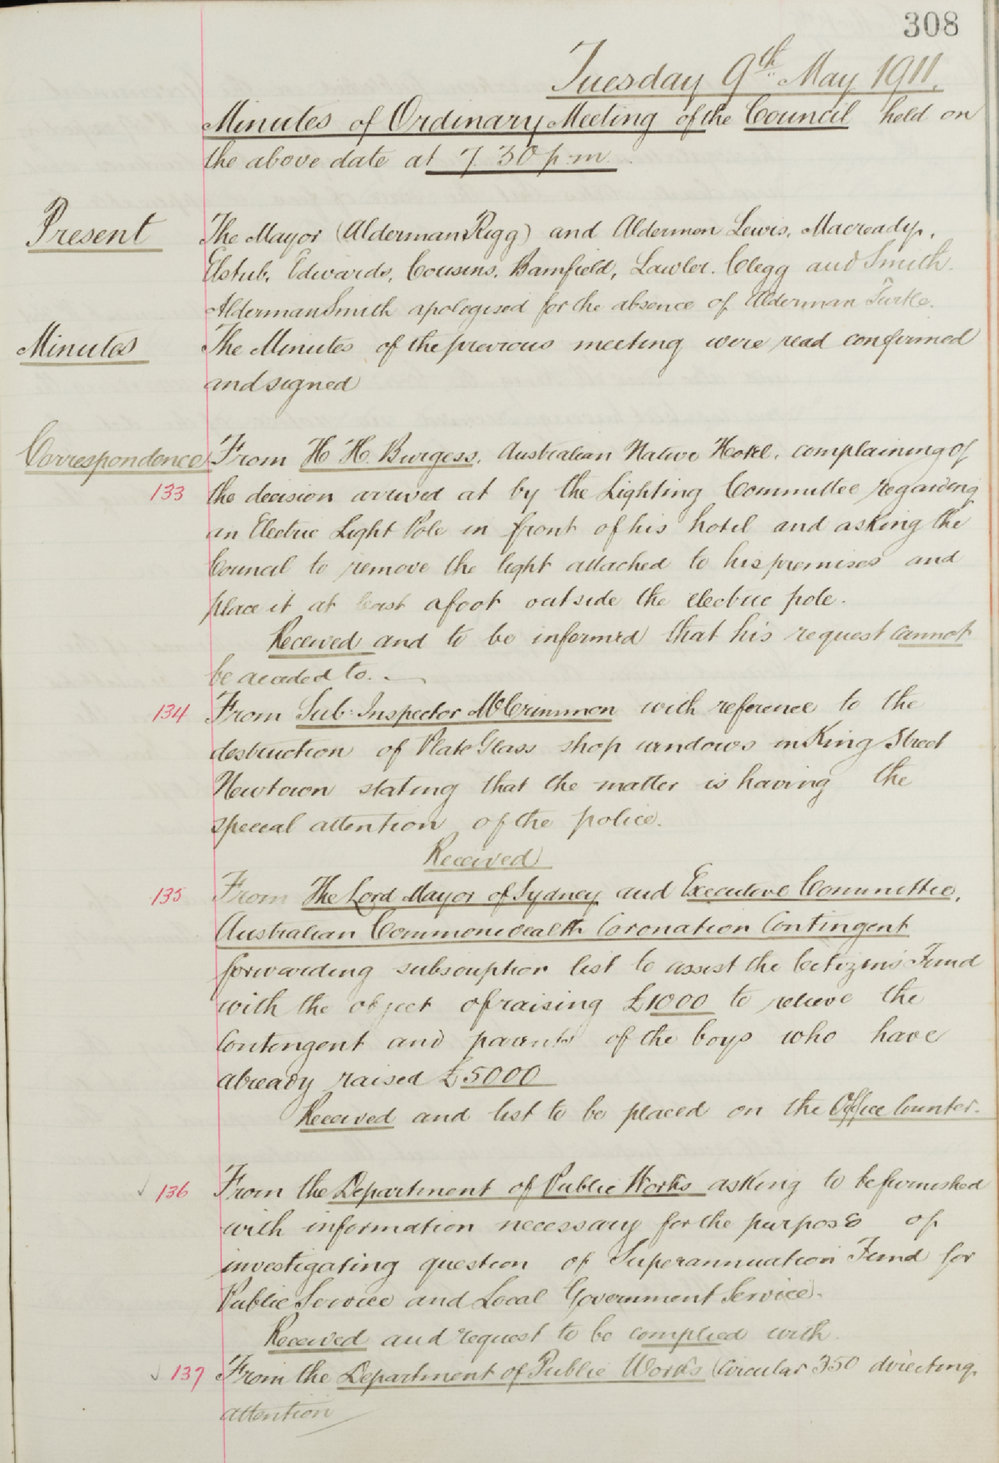 308
Tuesday 9th May 1911.
Minutes of Ordinary Meeting of the Council held on
the above date at 7 30 p.m.
Present
The Mayor (Alderman Rigg) and Aldermen Lewis, Macready,
Edwards, Cousins, Bamfield, Lawler. Clegg and Smith.
Alderman Smith apologised for the absence of Alderman Turtle.
Minutes
The Minutes of the previous meeting were read confirmed
and signed
Correspondence
From H. H. Burgess, Australian Native Hotel, complaining of
133
the decision arrived at by the Lighting Committee regarding
an Electric Light Pole in front of his hotel and asking the
Council to remove the light attached to his premises and
place it at least a foot outside the electric pole.
Received and to be informed that his request cannot
be acceded to.
134
From Sub-Inspector McCrimmon with reference to the
destruction of Plate Glass shop windows in King Street
Newtown stating that the matter is having the
special attention of the police.
Received
135
From The Lord Mayor of Sydney and Executive Committee,
Australian Commonwealth Coronation Contingent
forwarding subscription list to assist the Citizens Fund
with the object of raising £1000 to relieve the
Contingent and parents of the boys who have
already raised £5000
Received and list to be placed on the Office Counter.
136
From the Department of Public Works asking to be furnished
with information necessary for the purpose of
investigating question of Superannuation Fund for
Public Service and Local Government Service.
Received and request to be complied with.
137
From the Department of Public Works Circular 350 directing
attention